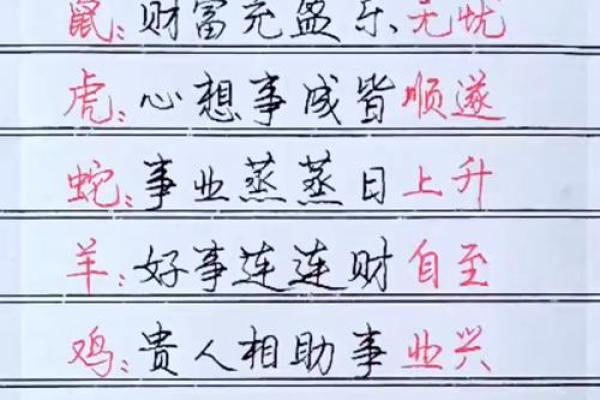 鼠:财富充盈乐无忧
虎:心想事成皆顺遂
蛇:事业蒸蒸日上升
羊:好事连连财自至
鸡:贵人相助事业兴